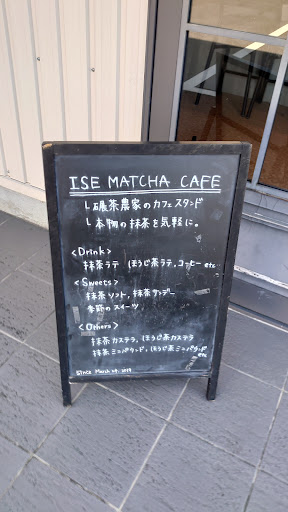 ISE MATCHA CAFE
└ 碾茶農家のカフェスタンド
└ 本物の抹茶を気軽に。
<Drink>
抹茶ラテ ほうじ茶ラテ, コーヒー etc
<Sweets>
抹茶ソフト, 抹茶サンデー
季節のスイーツ
<Others>
抹茶カステラ, ほうじ茶カステラ
抹茶ミニパウンド, ほうじ茶ミニパウンド
etc
Since March 29. 2019